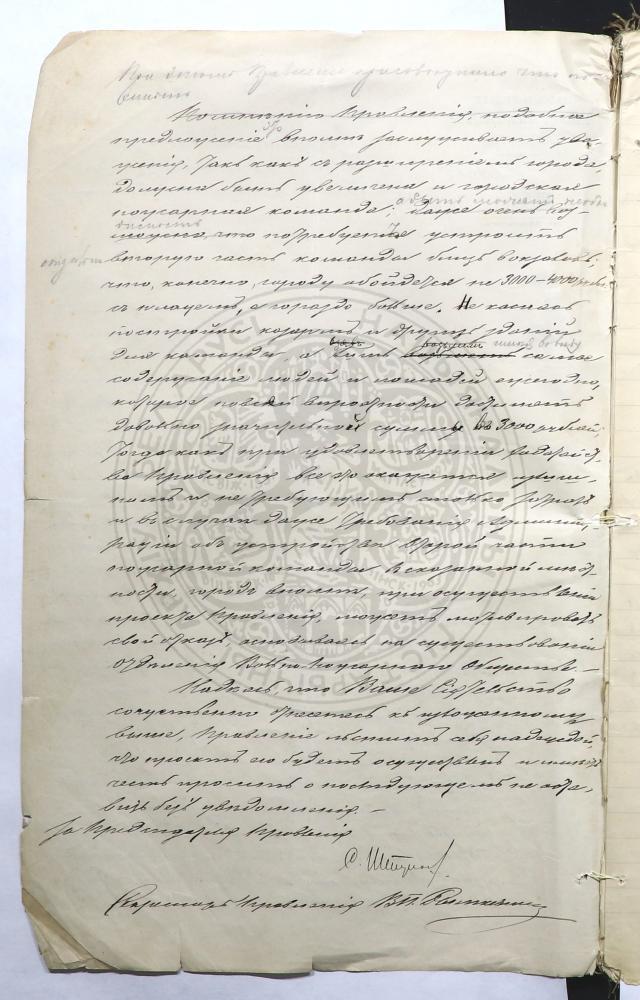 При этомъ Правленіе присовокупило что
По мнѣнію Правленія, подобное
предложеніе вполнѣ заслуживаетъ ува-
женія, такъ какъ съ расширеніемъ города,
должна быть увеличена и городская
пожарная команда; даже очень воз-
можно, что потребуется устроить
вторую часть команды близъ вокзаловъ,
что, конечно, городу обойдется не 3000–4000 рублей
а гораздо больше. Не касаясь
постройки казармъ и другихъ зданій
для команды, а лишь самое
содержаніе людей и лошадей ежегодно,
которое по всей вѣроятности достигнетъ
довольно значительной суммы въ 3000 рублей;
Тогда какъ при удовлетвореніи ходатайст-
ва Правленія все это окажется
и не требующимъ столько затратъ
и въ случаѣ даже требованія Админист-
раціи объ устройствѣ второй части
пожарной команды въ сказанной мѣст-
ности, городъ вполнѣ, при осуществленіи
проекта Правленія, можетъ мотивировать
свой отказъ, основываясь на существованіи
отдѣленія Вольно-Пожарнаго Общества. –
Надѣясь, что Ваше Сіятельство
сочувственно отнесетесь къ изложенному
выше, Правленіе льститъ себя надеждой,
что проектъ его будетъ осуществленъ и имѣетъ
честь просить о послѣдующемъ не оста-
вить безъ увѣдомленія. –
За Предсѣдателя Правленія
Секретарь Правленія